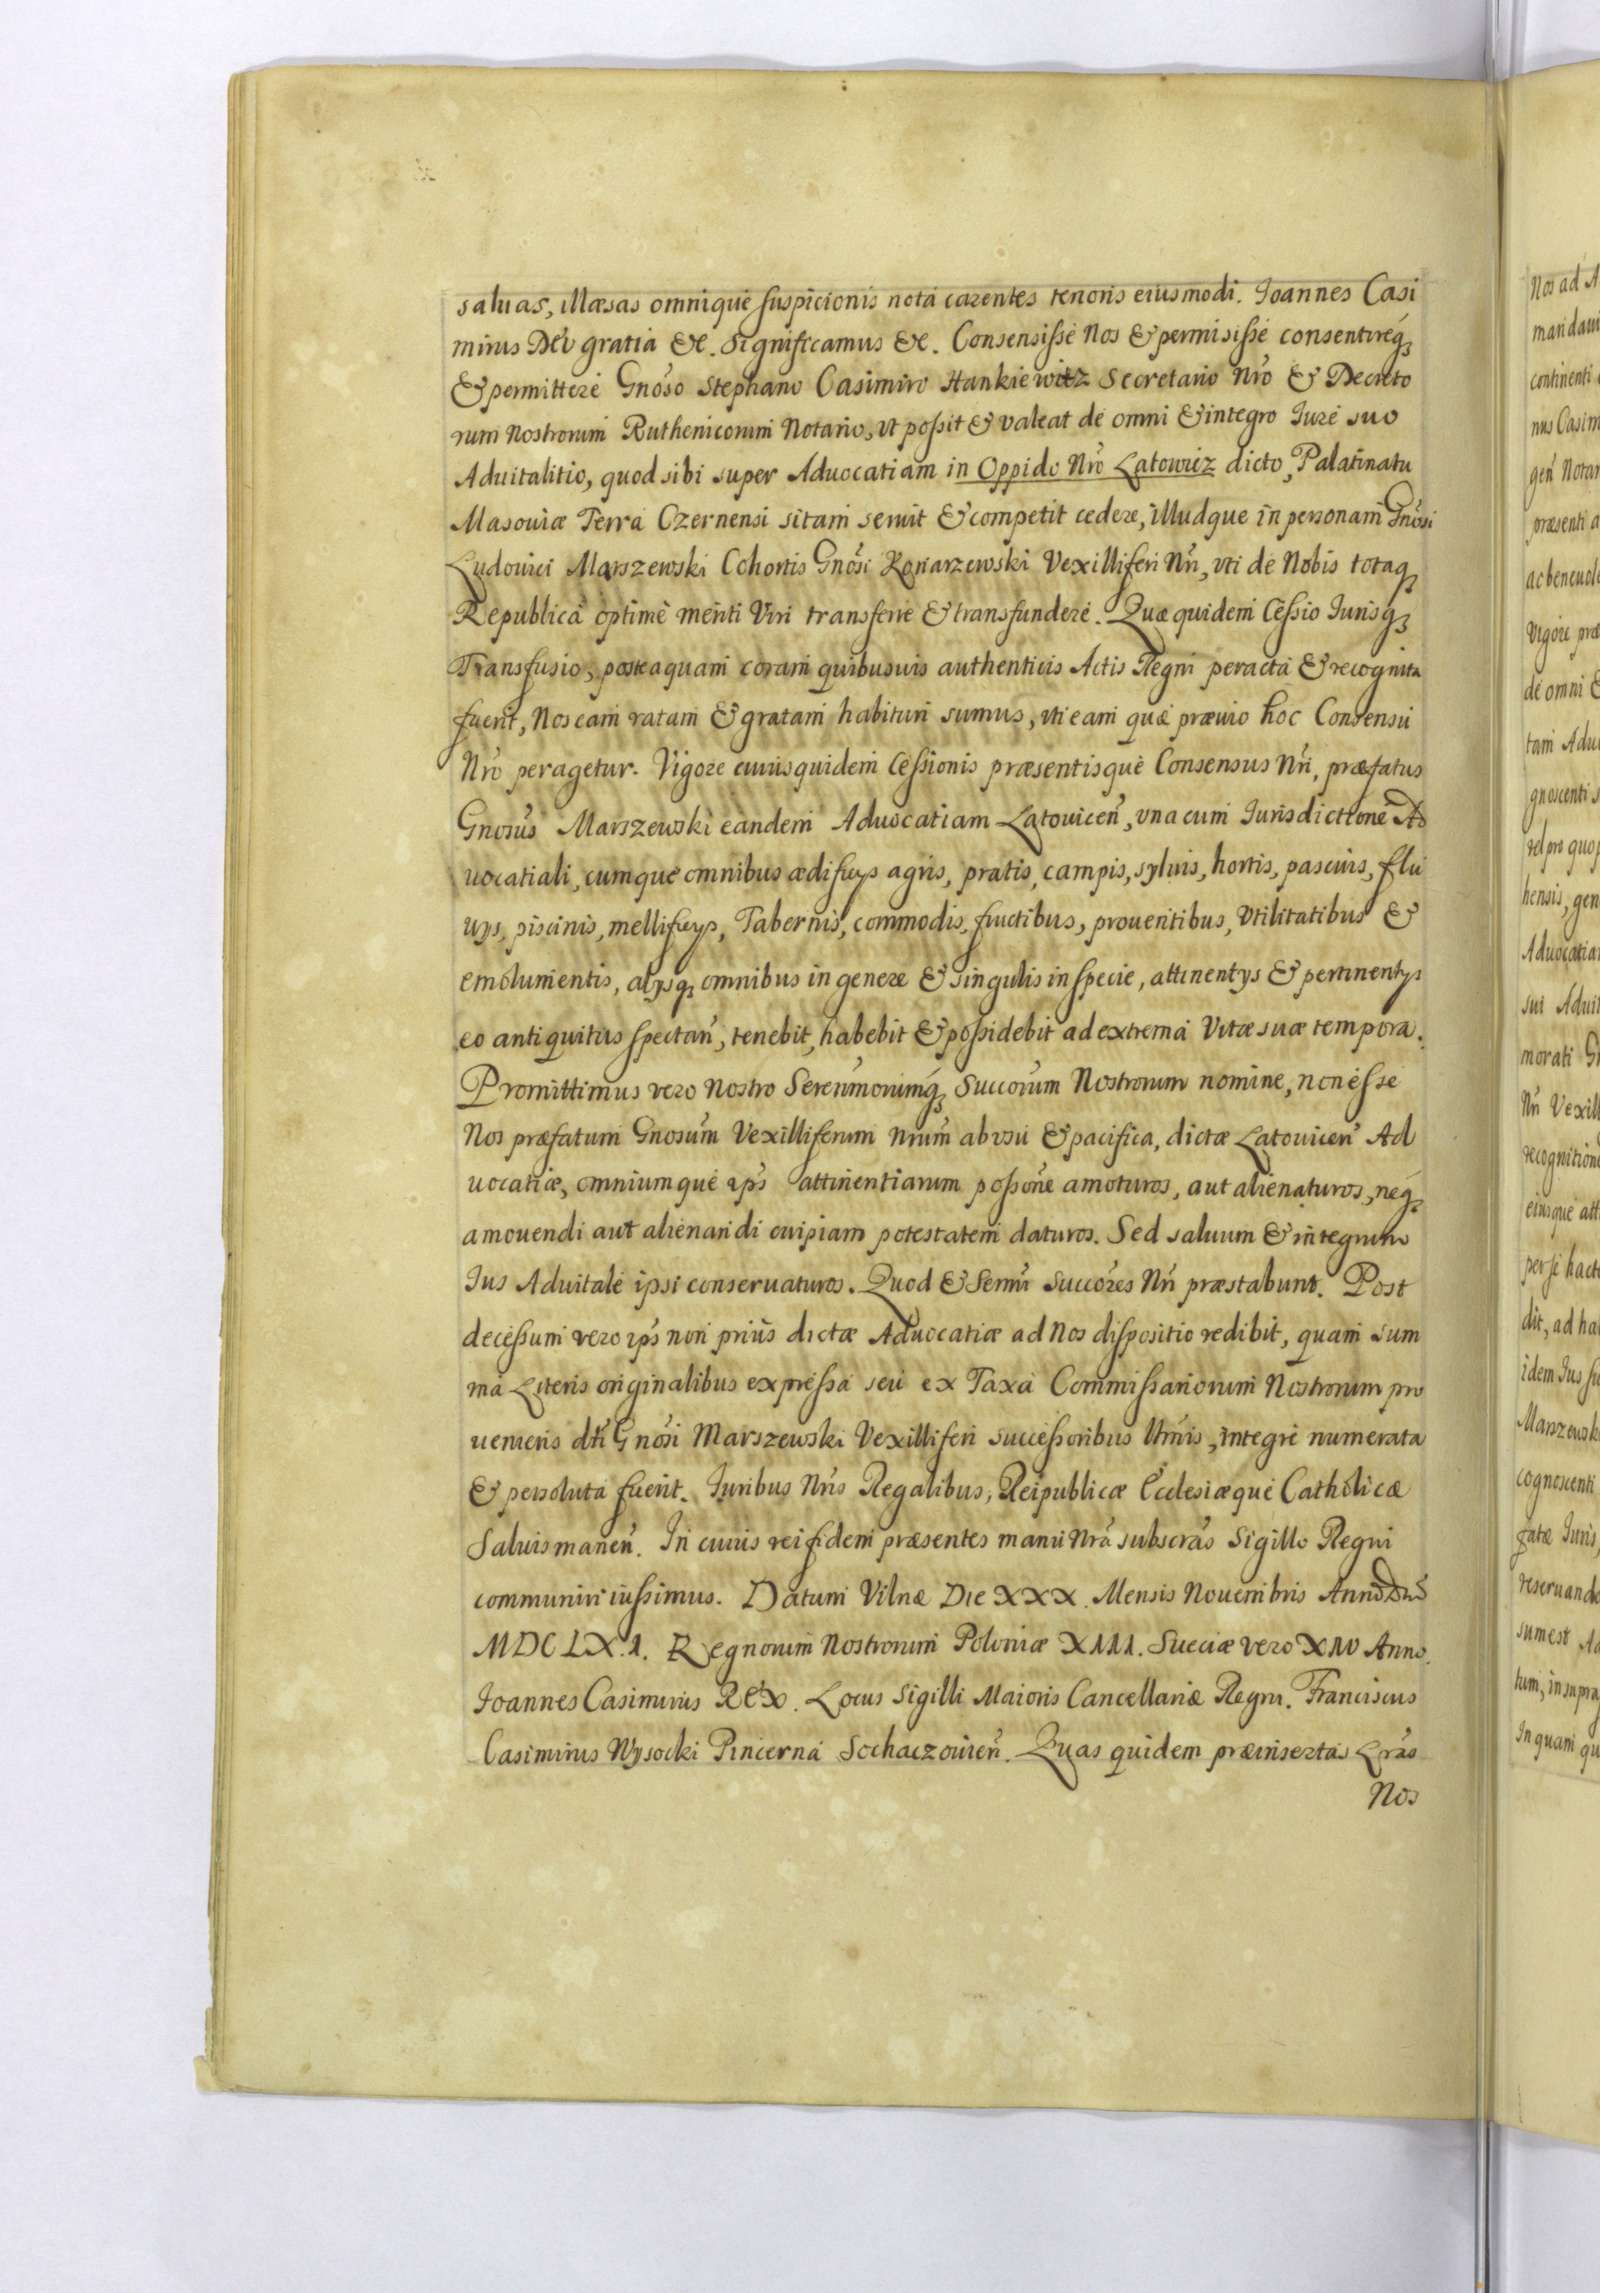 saluas, illæsas omniquè suspicionis notá carentes tenoris eiusmodi. Joannes Casi
mirus DEI gratiâ &c. Significamus &c. Consensisse Nos & permisisse consentireq́;
& permittere Gnoso Stephano Casimiro Hankiewicz Secretario Nro & Decreto
rum Nostrorum Ruthenicorum Notario, vt possit & valeat dè omni & integro Jure suo
Aduitalitio, quod sibi super Aduocatiam in Oppido Nro Latowicz dicto, Palatinatu
Masouiæ Terrâ Czernensi sitam seruit & competit cedere, illudque in personam Gnosi
Ludouici Marszewski Cohortis Gnosi Konarzewski Vexilliferi Nri, vti dè Nobis totaq;
Republicâ optimè meriti Viri transferre & transfundere. Quæ quidem Cessio Jurisq;
Transfusio, posteaquam coram quibusuis authenticis Actis Regni peracta & recognita
fuerit, Nos eam ratam & gratam habituri sumus, vti eam quæ præuio hoc Consensu
Nro peragetur. Vigore cuius quidem Cessionis præsentisquè Consensus Nri, præfatus
Gnosus Marszewski eandem Aduocatiam Latouicen̄, vna cum Jurisdictione Ad
uocatiali, cumquè omnibus ædificijs agris, pratis, campis, syluis, hortis, pascuis, flu
uijs, piscinis, mellificijs, Tabernis, commodis, fructibus, prouentibus, vtilitatibus &
emolumentis, alijsq; omnibus in genere & singulis in specie, attinentijs & pertinentijs
eo antiquitus spectan̄, tenebit, habebit & possidebit ad extrema Vitæ suæ tempora.
Promittimus vero Nostro Serenmorumq́; Succorum Nostrorum nomine, non esse
Nos præfatum Gnosum Vexilliferum Nrum ab vsu & pacifica, dictæ Latouicen̄ Ad
uocatiæ, omniumquè ips attinentiarum possone amoturos, aut alienaturos, neq́;
amouendi aut alienandi cuipiam potestatem daturos. Sed saluum & integrum
Jus Aduitalè ipsi conseruaturos. Quod & Sermi Succores Nri præstabunt. Post
decessum vero ips non priùs dictæ Aduocatiæ ad Nos dispositio redibit, quam sum
ma Literis originalibus expressa seu ex Taxa Commissariorum Nostrorum pro
ueniens dti Gnosi Marszewski Vexilliferi successoribus ltmis, integrè numerata
& persoluta fuerit. Juribus Nris Regalibus, Reipublicæ Ecclesiæquè Catholicæ
Saluis manen̄. In cuius rei fidem præsentes manu Nra subscras Sigillo Regni
communiri iussimus. Datum Vilnæ Die XXX. Mensis Nouembris Anno Dni
MDCLX.1. Regnorum Nostrorum Poloniæ XIII. Sueciæ vero XIV Anno.
Joannes Casimirus REX. Locus Sigilli Maioris Cancellariæ Regni. Franciscus
Casimirus Wysocki Pincerna Sochaczouien̄. Quas quidem præinsertas Lras
Nos